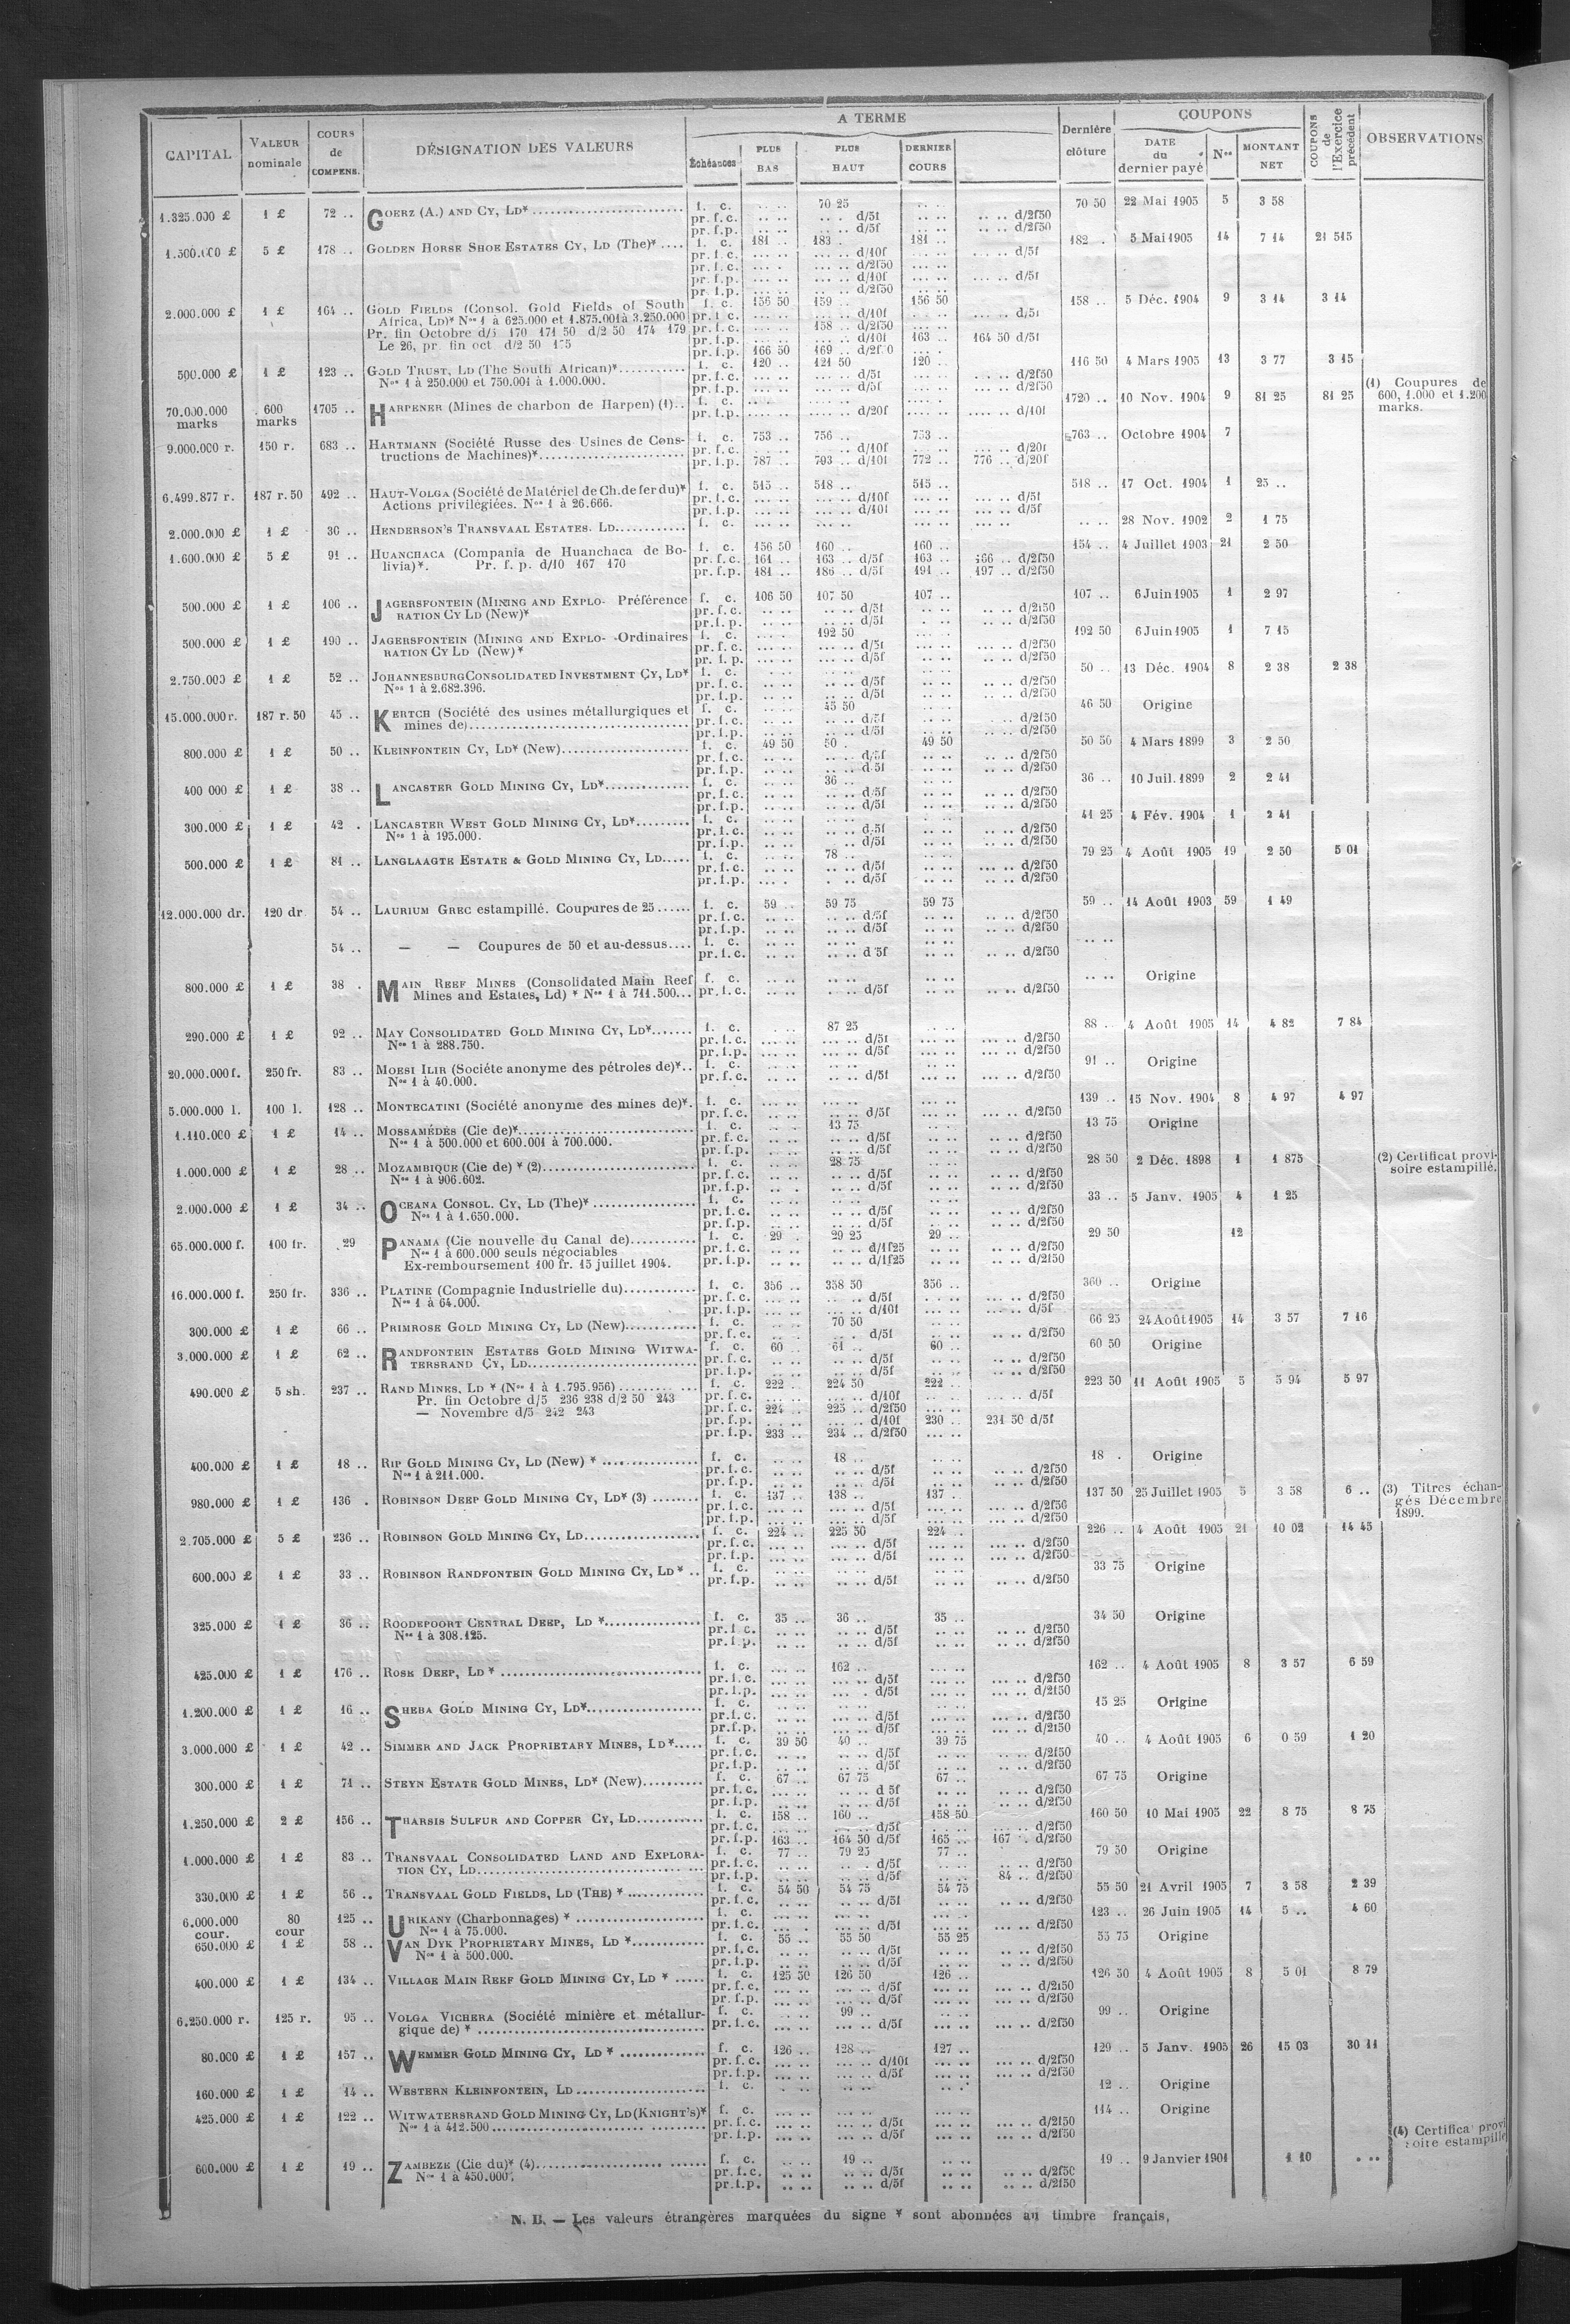 A TERME
COUPONS
CAPITAL
VALEUR nominale
COURS de COMPENS.
DÉSIGNATION DES VALEURS
Échéances
PLUS BAS
PLUS HAUT
DERNIER COURS
Dernière clôture
DATE du dernier payé
Nos
MONTANT NET
COUPONS de l'Exercice précédent
OBSERVATIONS
1.325.000 £ 1 £ 72 .. GOERZ (A.) AND CY, LD* f. c. 70 25 70 50 22 Mai 1905 5 3 58
pr. f. c. d/5f d/2f50
pr. f. p. d/5f d/2f50
1.500.000 £ 5 £ 178 .. GOLDEN HORSE SHOE ESTATES CY, LD (The)* f. c. 181 .. 183 . 181 .. 182 . 5 Mai 1905 14 7 14 21 515
pr. f. c. d/10f d/5f
pr. f. c. d/2f50
pr. f. p. d/10f d/5f
pr. f. p. d/2f50
2.000.000 £ 1 £ 164 .. GOLD FIELDS (Consol. Gold Fields of South f. c. 156 50 159 .. 156 50 158 .. 5 Déc. 1904 9 3 14 3 14
Africa, LD)* Nos 1 à 625.000 et 1.875.001 à 3.250.000 pr. f. c. d/10f d/5f
Pr. fin Octobre d/5 170 171 50 d/2 50 174 179 pr. f. c. 158 .. d/2f50
Le 26, pr fin oct d/2 50 pr. f. p. d/10f 163 .. 164 50 d/5f
pr. f. p. 166 50 169 ..
500.000 £ 1 £ 123 .. GOLD TRUST, LD (The South African)* f. c. 120 .. 121 50 120 .. 116 50 4 Mars 1905 13 3 77 3 15
Nos 1 à 250.000 et 750.001 à 1.000.000. pr. f. c. d/5f d/2f50
pr. f. p. d/5f d/2f50
(1) Coupures de
600, 1.000 et 1.200
marks.
70.000.000 marks 600 marks 1705 .. HARPENER (Mines de charbon de Harpen) (1).. f. c. 1720 .. 10 Nov. 1904 9 81 25 81 25
pr. f. p. d/20f d/10f
9.000.000 r. 150 r. 683 .. HARTMANN (Société Russe des Usines de Cons- f. c. 753 .. 756 .. 753 .. 763 .. Octobre 1904 7
tructions de Machines)* pr. f. c. d/10f d/20f
pr. f. p. 787 .. 793 .. d/10f 772 .. 776 .. d/20f
6.499.877 r. 187 r. 50 492 .. HAUT-VOLGA (Société de Matériel de Ch. de fer du)* f. c. 515 .. 518 .. 515 .. 518 .. 17 Oct. 1904 1 25 ..
Actions privilégiées. Nos 1 à 26.666. pr. f. c. d/10f d/5f
pr. f. p. d/10f d/5f
2.000.000 £ 1 £ 36 .. HENDERSON'S TRANSVAAL ESTATES. LD f. c. 28 Nov. 1902 2 1 75
1.600.000 £ 5 £ 91 .. HUANCHACA (Compania de Huanchaca de Bo- f. c. 156 50 160 .. 160 .. 154 .. 4 Juillet 1903 21 2 50
livia)*. Pr. f. p. d/10 167 170 pr. f. c. 161 .. 163 .. d/5f 163 .. 166 .. d/2f50
pr. f. p. 181 .. 186 .. d/5f 191 .. 197 .. d/2f50
500.000 £ 1 £ 106 .. JAGERSFONTEIN (MINING AND EXPLO- Préférence f. c. 106 50 107 50 107 .. 107 .. 6 Juin 1905 1 2 97
RATION CY LD (New)* pr. f. c. d/5f d/2f50
pr. f. p. d/5f d/2f50
500.000 £ 1 £ 190 .. JAGERSFONTEIN (MINING AND EXPLO- Ordinaires f. c. 192 50 192 50 6 Juin 1905 1 7 15
RATION CY LD (New)* pr. f. c. d/5f d/2f50
pr. f. p. d/5f d/2f50
2.750.000 £ 1 £ 52 .. JOHANNESBURG CONSOLIDATED INVESTMENT CY, LD* f. c. 50 .. 13 Déc. 1904 8 2 38 2 38
Nos 1 à 2.682.396. pr. f. c. d/5f d/2f50
pr. f. p. d/5f d/2f50
15.000.000 r. 187 r. 50 45 .. KERTCH (Société des usines métallurgiques et f. c. 45 50 46 50 Origine
mines de) pr. f. c. d/5f d/2f50
pr. f. p. d/5f d/2f50
800.000 £ 1 £ 50 .. KLEINFONTEIN CY, LD* (New) f. c. 49 50 50 . 49 50 50 50 4 Mars 1899 3 2 50
pr. f. c. d/5f d/2f50
pr. f. p. d/5f d/2f50
400 000 £ 1 £ 38 .. LANCASTER GOLD MINING CY, LD* f. c. 36 .. 36 .. 10 Juil. 1899 2 2 41
pr. f. c. d/5f d/2f50
pr. f. p. d/5f d/2f50
300.000 £ 1 £ 42 . LANCASTER WEST GOLD MINING CY, LD* f. c. 41 25 4 Fév. 1904 1 2 41
Nos 1 à 195.000. pr. f. c. d/5f d/2f50
pr. f. p. d/5f d/2f50
500.000 £ 1 £ 81 .. LANGLAAGTE ESTATE & GOLD MINING CY, LD f. c. 78 .. 79 25 4 Août 1905 19 2 50 5 01
pr. f. c. d/5f d/2f50
pr. f. p. d/5f d/2f50
12.000.000 dr. 120 dr 54 .. LAURIUM GREC estampillé. Coupures de 25 f. c. 59 .. 59 75 59 75 59 .. 14 Août 1903 59 1 49
pr. f. c. d/5f d/2f50
pr. f. p. d/5f d/2f50
54 .. — — Coupures de 50 et au-dessus f. c.
pr. f. c. d 5f d/2f50
800.000 £ 1 £ 38 . MAIN REEF MINES (Consolidated Main Reef f. c. Origine
Mines and Estates, Ld) * Nos 1 à 711.500 pr. f. c. d/5f d/2f50
290.000 £ 1 £ 92 .. MAY CONSOLIDATED GOLD MINING CY, LD* f. c. 87 25 88 .. 4 Août 1905 14 4 82 7 84
Nos 1 à 288.750. pr. f. c. d/5f d/2f50
pr. f. p. d/5f d/2f50
20.000.000 f. 250 fr. 83 .. MOESI ILIR (Société anonyme des pétroles de)* f. c. 91 .. Origine
Nos 1 à 40.000. pr. f. c. d/5f d/2f50
5.000.000 l. 100 l. 128 .. MONTECATINI (Société anonyme des mines de)* f. c. 139 .. 15 Nov. 1904 8 4 97 4 97
pr. f. c. d/5f d/2f50
1.110.000 £ 1 £ 14 .. MOSSAMÉDÈS (Cie de)* f. c. 13 75 13 75 Origine
Nos 1 à 500.000 et 600.001 à 700.000. pr. f. c. d/5f d/2f50
pr. f. p. d/5f d/2f50
1.000.000 £ 1 £ 28 .. MOZAMBIQUE (Cie de) * (2) f. c. 28 75 28 50 2 Déc. 1898 1 1 875 (2) Certificat provi-
soire estampillé.
Nos 1 à 906.602. pr. f. c. d/5f d/2f50
pr. f. p. d/5f d/2f50
2.000.000 £ 1 £ 34 .. OCEANA CONSOL. CY, LD (The)* f. c. 33 .. 5 Janv. 1905 4 1 25
Nos 1 à 1.650.000. pr. f. c. d/5f d/2f50
pr. f. p. d/5f d/2f50
65.000.000 f. 100 fr. 29 PANAMA (Cie nouvelle du Canal de) f. c. 29 . 29 25 29 .. 29 50 12
Nos 1 à 600.000 seuls négociables pr. f. c. d/1f25 d/2f50
Ex-remboursement 100 fr. 15 juillet 1904. pr. f. p. d/1f25 d/2f50
16.000.000 f. 250 fr. 336 .. PLATINE (Compagnie Industrielle du) f. c. 356 .. 358 50 356 .. 360 .. Origine
Nos 1 à 64.000. pr. f. c. d/5f d/2f50
pr. f. p. d/10f d/5f
300.000 £ 1 £ 66 .. PRIMROSE GOLD MINING CY, LD (New) f. c. 70 50 66 25 24 Août 1905 14 3 57 7 16
pr. f. c. d/5f d/2f50
3.000.000 £ 1 £ 62 .. RANDFONTEIN ESTATES GOLD MINING WITWA- f. c. 60 .. 61 .. 60 .. 60 50 Origine
TERSRAND CY, LD pr. f. c. d/5f d/2f50
pr. f. p. d/5f d/2f50
490.000 £ 5 sh. 237 .. RAND MINES, LD * (Nos 1 à 1.795.956) f. c. 222 .. 224 50 222 .. 223 50 11 Août 1905 5 5 94 5 97
Pr. fin Octobre d/5 236 238 d/2 50 243 pr. f. c. d/10f d/5f
— Novembre d/5 242 243 pr. f. c. 224 .. 225 .. d/2f50
pr. f. p. d/10f 230 .. 231 50 d/5f
pr. f. p. 233 .. 234 .. d/2f50
400.000 £ 1 £ 18 .. RIP GOLD MINING CY, LD (New) * f. c. 18 .. 18 . Origine
Nos 1 à 211.000. pr. f. c. d/5f d/2f50
pr. f. p. d/5f d/2f50
980.000 £ 1 £ 136 . ROBINSON DEEP GOLD MINING CY, LD* (3) f. c. 137 .. 138 .. 137 137 50 25 Juillet 1905 5 3 58 6 .. (3) Titres échan-
gés Décembre
1899.
pr. f. c. d/5f d/2f50
pr. f. p. d/5f d/2f50
2.705.000 £ 5 £ 236 .. ROBINSON GOLD MINING CY, LD f. c. 224 .. 225 50 224 .. 226 .. 4 Août 1905 21 10 02 14 45
pr. f. c. d/5f d/2f50
pr. f. p. d/5f d/2f50
600.000 £ 1 £ 33 .. ROBINSON RANDFONTEIN GOLD MINING CY, LD * f. c. 33 75 Origine
pr. f. p. d/5f d/2f50
325.000 £ 1 £ 36 .. ROODEPOORT CENTRAL DEEP, LD * f. c. 35 .. 36 .. 35 .. 34 50 Origine
Nos 1 à 308.125. pr. f. c. d/5f d/2f50
pr. f. p. d/5f d/2f50
425.000 £ 1 £ 176 .. ROSE DEEP, LD * f. c. 162 .. 162 .. 4 Août 1905 8 3 57 6 59
pr. f. c. d/5f d/2f50
pr. f. p. d/5f d/2f50
1.200.000 £ 1 £ 16 .. SHEBA GOLD MINING CY, LD* f. c. 15 25 Origine
pr. f. c. d/5f d/2f50
pr. f. p. d/5f d/2f50
3.000.000 £ 1 £ 42 .. SIMMER AND JACK PROPRIETARY MINES, LD* f. c. 39 50 40 .. 39 75 40 .. 4 Août 1905 6 0 59 1 20
pr. f. c. d/5f d/2f50
pr. f. p. d/5f d/2f50
300.000 £ 1 £ 71 .. STEYN ESTATE GOLD MINES, LD* (New) f. c. 67 .. 67 75 67 .. 67 75 Origine
pr. f. c. d 5f d/2f50
pr. f. p. d/5f d/2f50
1.250.000 £ 2 £ 156 .. THARSIS SULFUR AND COPPER CY, LD f. c. 158 .. 160 .. 158 50 160 50 10 Mai 1905 22 8 75 8 75
pr. f. c. d/5f d/2f50
pr. f. p. 163 .. 164 50 d/5f 165 .. 167 .. d/2f50
1.000.000 £ 1 £ 83 .. TRANSVAAL CONSOLIDATED LAND AND EXPLORA- f. c. 77 .. 79 25 77 .. 79 50 Origine
TION CY, LD pr. f. c. d/5f d/2f50
pr. f. p. d/5f 84 .. d/2f50
330.000 £ 1 £ 56 .. TRANSVAAL GOLD FIELDS, LD (THE) * f. c. 54 50 54 75 54 75 55 50 21 Avril 1905 7 3 58 2 39
pr. f. c. d/5f d/2f50
6.000.000 cour. 80 cour 125 .. URIKANY (Charbonnages) * f. c. 123 .. 26 Juin 1905 14 5 .. 4 60
Nos 1 à 75.000. pr. f. c. d/5f d/2f50
650.000 £ 1 £ 58 .. VAN DYK PROPRIETARY MINES, LD * f. c. 55 .. 55 50 55 25 55 75 Origine
Nos 1 à 500.000. pr. f. c. d/5f d/2f50
pr. f. p. d/5f d/2f50
400.000 £ 1 £ 134 .. VILLAGE MAIN REEF GOLD MINING CY, LD * f. c. 125 50 126 50 126 .. 126 50 4 Août 1905 8 5 01 8 79
pr. f. c. d/5f d/2f50
pr. f. p. d/5f d/2f50
6.250.000 r. 125 r. 95 .. VOLGA VICHERA (Société minière et métallur- f. c. 99 .. 99 .. Origine
gique de) * pr. f. c. d/5f d/2f50
80.000 £ 1 £ 157 .. WEMMER GOLD MINING CY, LD * f. c. 126 .. 128 .. 127 .. 129 .. 5 Janv. 1905 26 15 03 30 11
pr. f. c. d/10f d/2f50
pr. f. p. d/5f d/2f50
160.000 £ 1 £ 14 .. WESTERN KLEINFONTEIN, LD f. c. 12 .. Origine
425.000 £ 1 £ 122 .. WITWATERSRAND GOLD MINING CY, LD (KNIGHT'S)* f. c. 114 .. Origine
Nos 1 à 412.500 pr. f. c. d/5f d/2f50
pr. f. p. d/5f d/2f50
(4) Certificat provi
soire estampillé
600.000 £ 1 £ 19 .. ZAMBEZE (Cie du)* (4) f. c. 19 .. 19 .. 9 Janvier 1901 1 10
Nos 1 à 450.000. pr. f. c. d/5f d/2f50
pr. f. p. d/5f d/2f50
N. B. — Les valeurs étrangères marquées du signe * sont abonnées au timbre français.